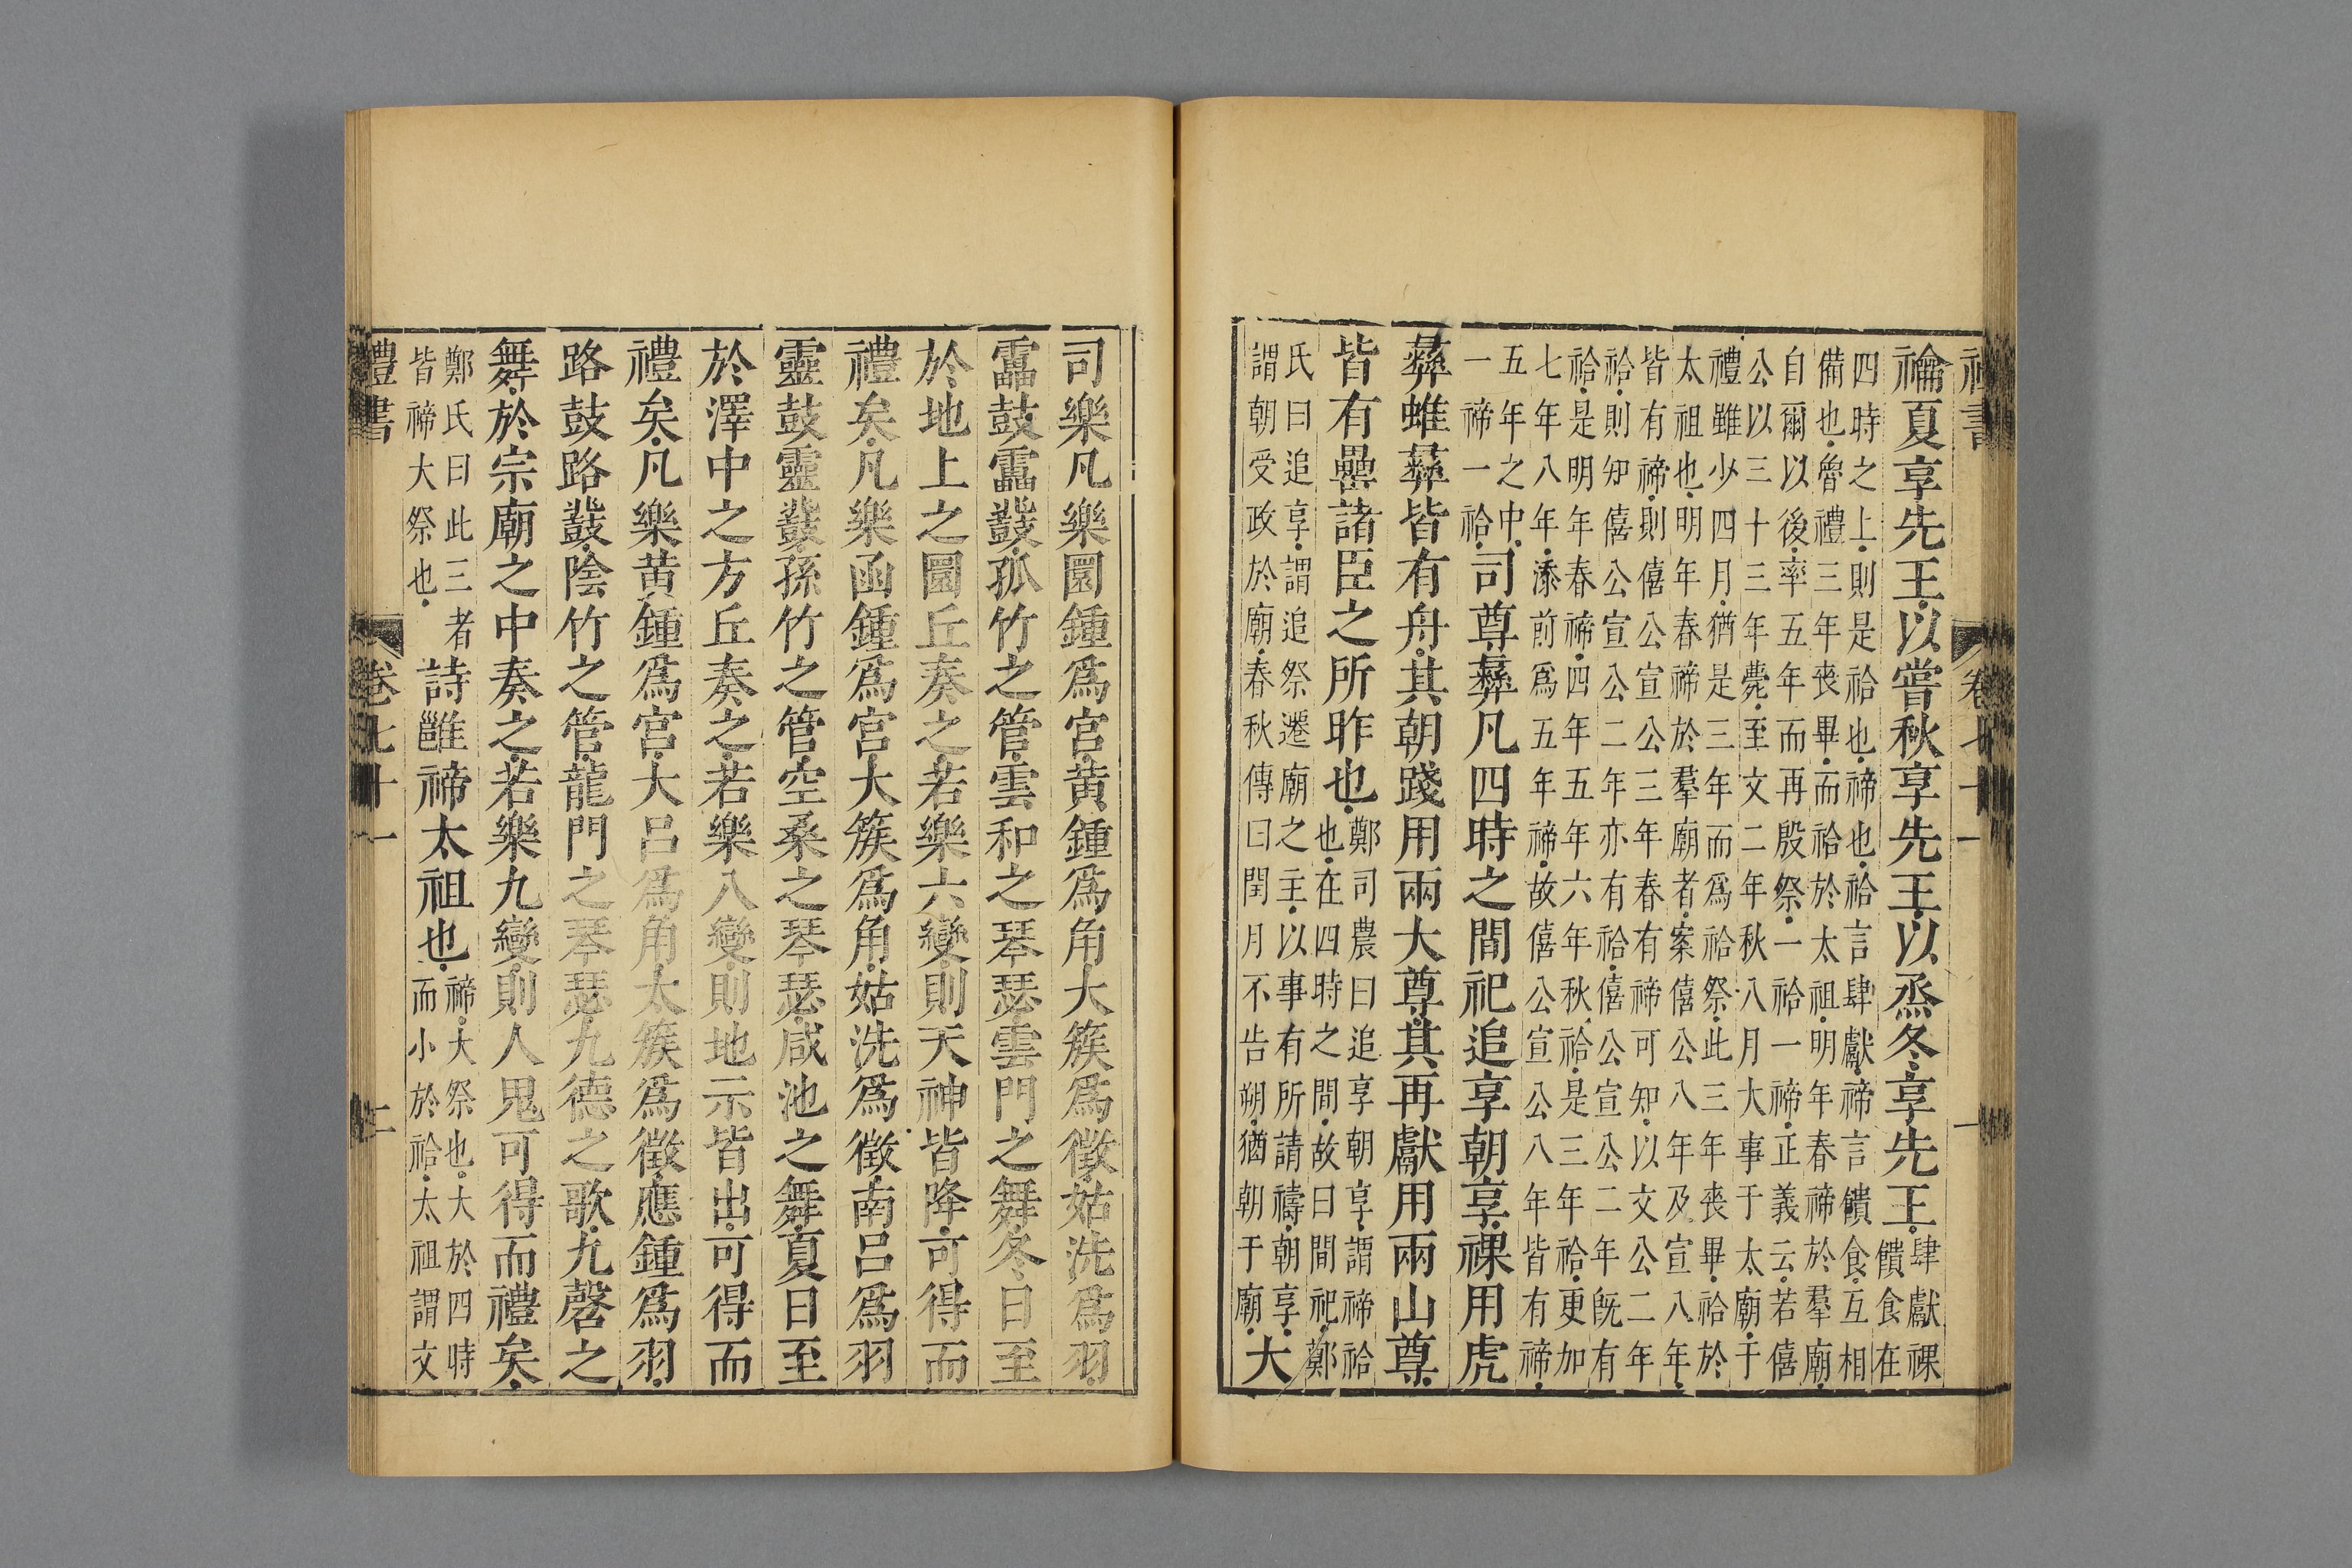 禮書 卷七十一 一
禴夏享先王以嘗秋享先王以烝冬享先王肆獻祼
饋食在
四時之上則是祫也禘也祫言肆獻禘言饋食互相
備也魯禮三年喪畢而祫於太祖明年春禘於羣廟
自爾以後率五年而再殷祭一祫一禘正義云若僖
公以三十三年薨至文二年秋八月大事于太廟于
禮雖少四月猶是三年而爲祫祭此三年喪畢祫於
太祖也明年春禘於羣廟者案僖公八年及宣八年
皆有禘則僖公宣公三年春有禘可知以文公二年
祫則知僖公宣公二年亦有祫僖公宣公二年既有
祫是明年春禘四年五年六年秋祫是三年祫更加
七年八年添前爲五年禘故僖公宣公八年皆有禘
五年之中
一禘一祫司尊彝凡四時之間祀追享朝享祼用虎
彝蜼彝皆有舟其朝踐用兩大尊其再獻用兩山尊
皆有罍諸臣之所昨也鄭司農曰追享朝享謂禘祫
也在四時之間故曰間祀鄭
氏曰追享謂追祭遷廟之主以事有所請禱朝享
謂朝受政於廟春秋傳曰閏月不告朔猶朝于廟大
司樂凡樂圜鍾爲宮黄鍾爲角大簇爲徵姑洗爲羽
靁鼓靁鼗孤竹之管雲和之琴瑟雲門之舞冬日至
於地上之圜丘奏之若樂六變則天神皆降可得而
禮矣凡樂函鍾爲宮大簇爲角姑洗爲徵南呂爲羽
靈鼓靈鼗孫竹之管空桑之琴瑟咸池之舞夏日至
於澤中之方丘奏之若樂八變則地示皆出可得而
禮矣凡樂黄鍾爲宮大呂爲角太簇爲徵應鍾爲羽
路鼓路鼗陰竹之管龍門之琴瑟九德之歌九磬之
舞於宗廟之中奏之若樂九變則人鬼可得而禮矣
鄭氏曰此三者
皆禘大祭也詩雝禘太祖也禘大祭也大於四時
而小於祫太祖謂文
禮書 卷七十一 二